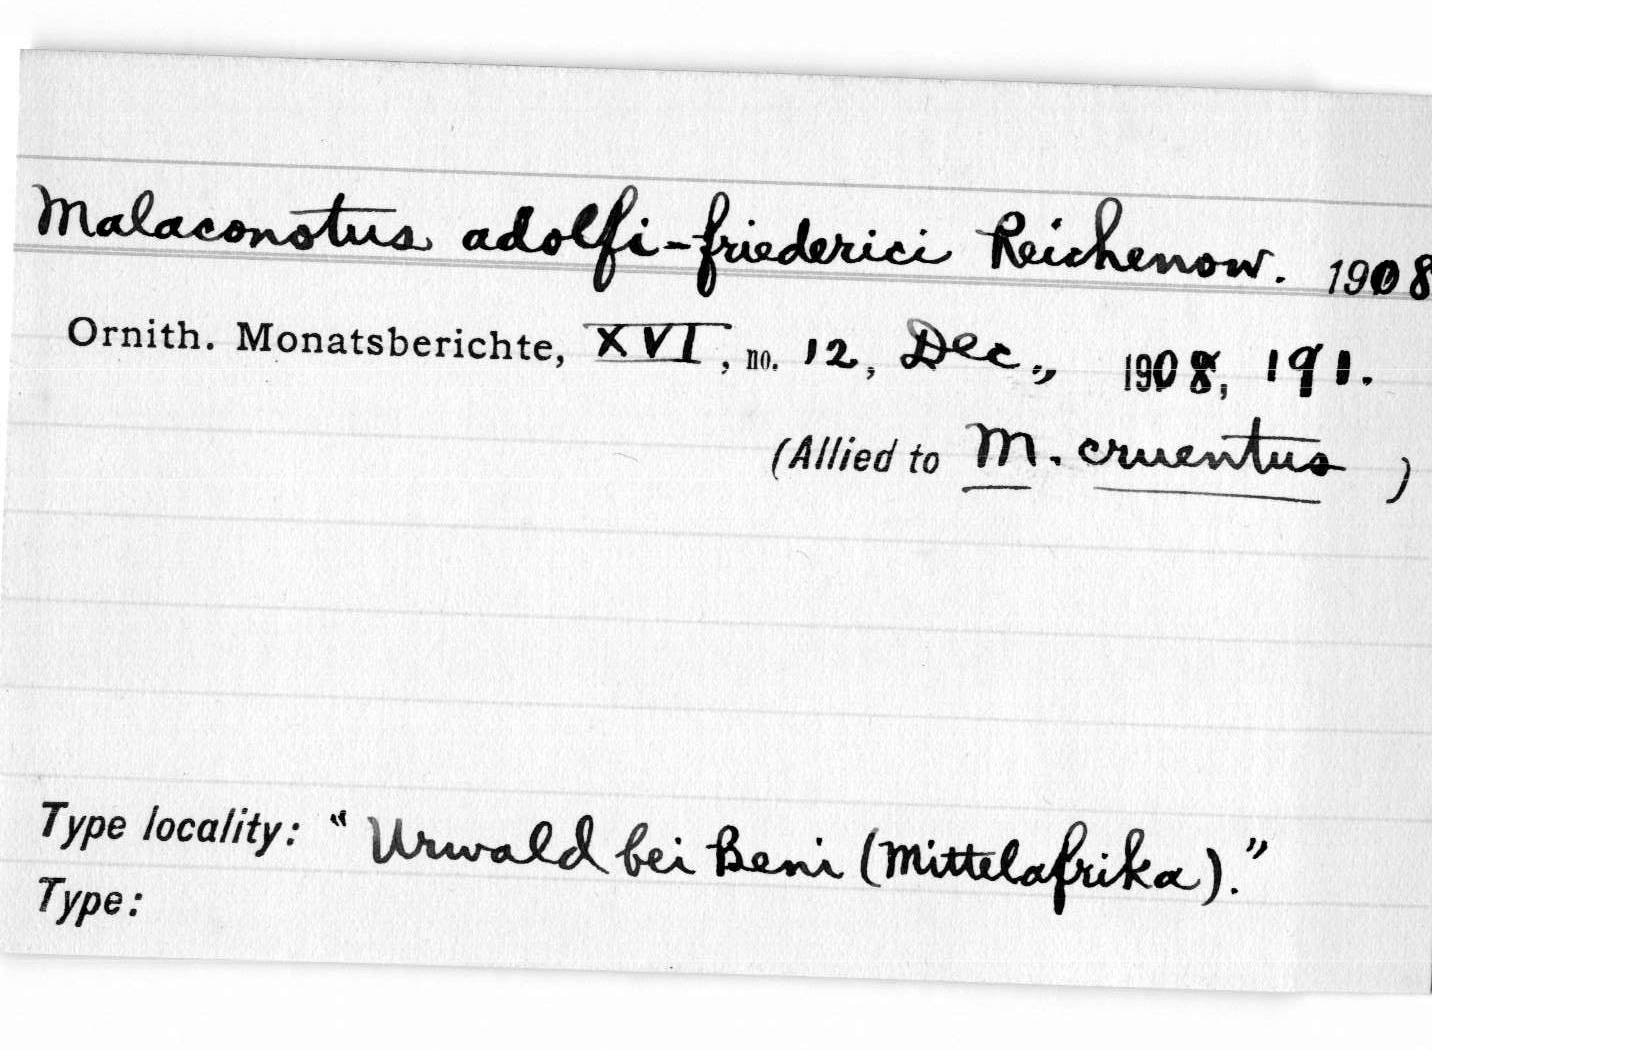 Malaconotus adolfi-friederici Reichenow. 1908
Ornith. Monatsberichte, XVI, no. 12, Dec., 1908, 191.
(Allied to M. cruentus )
Type locality: “Urwald bei Beni (Mittelafrika).”
Type: